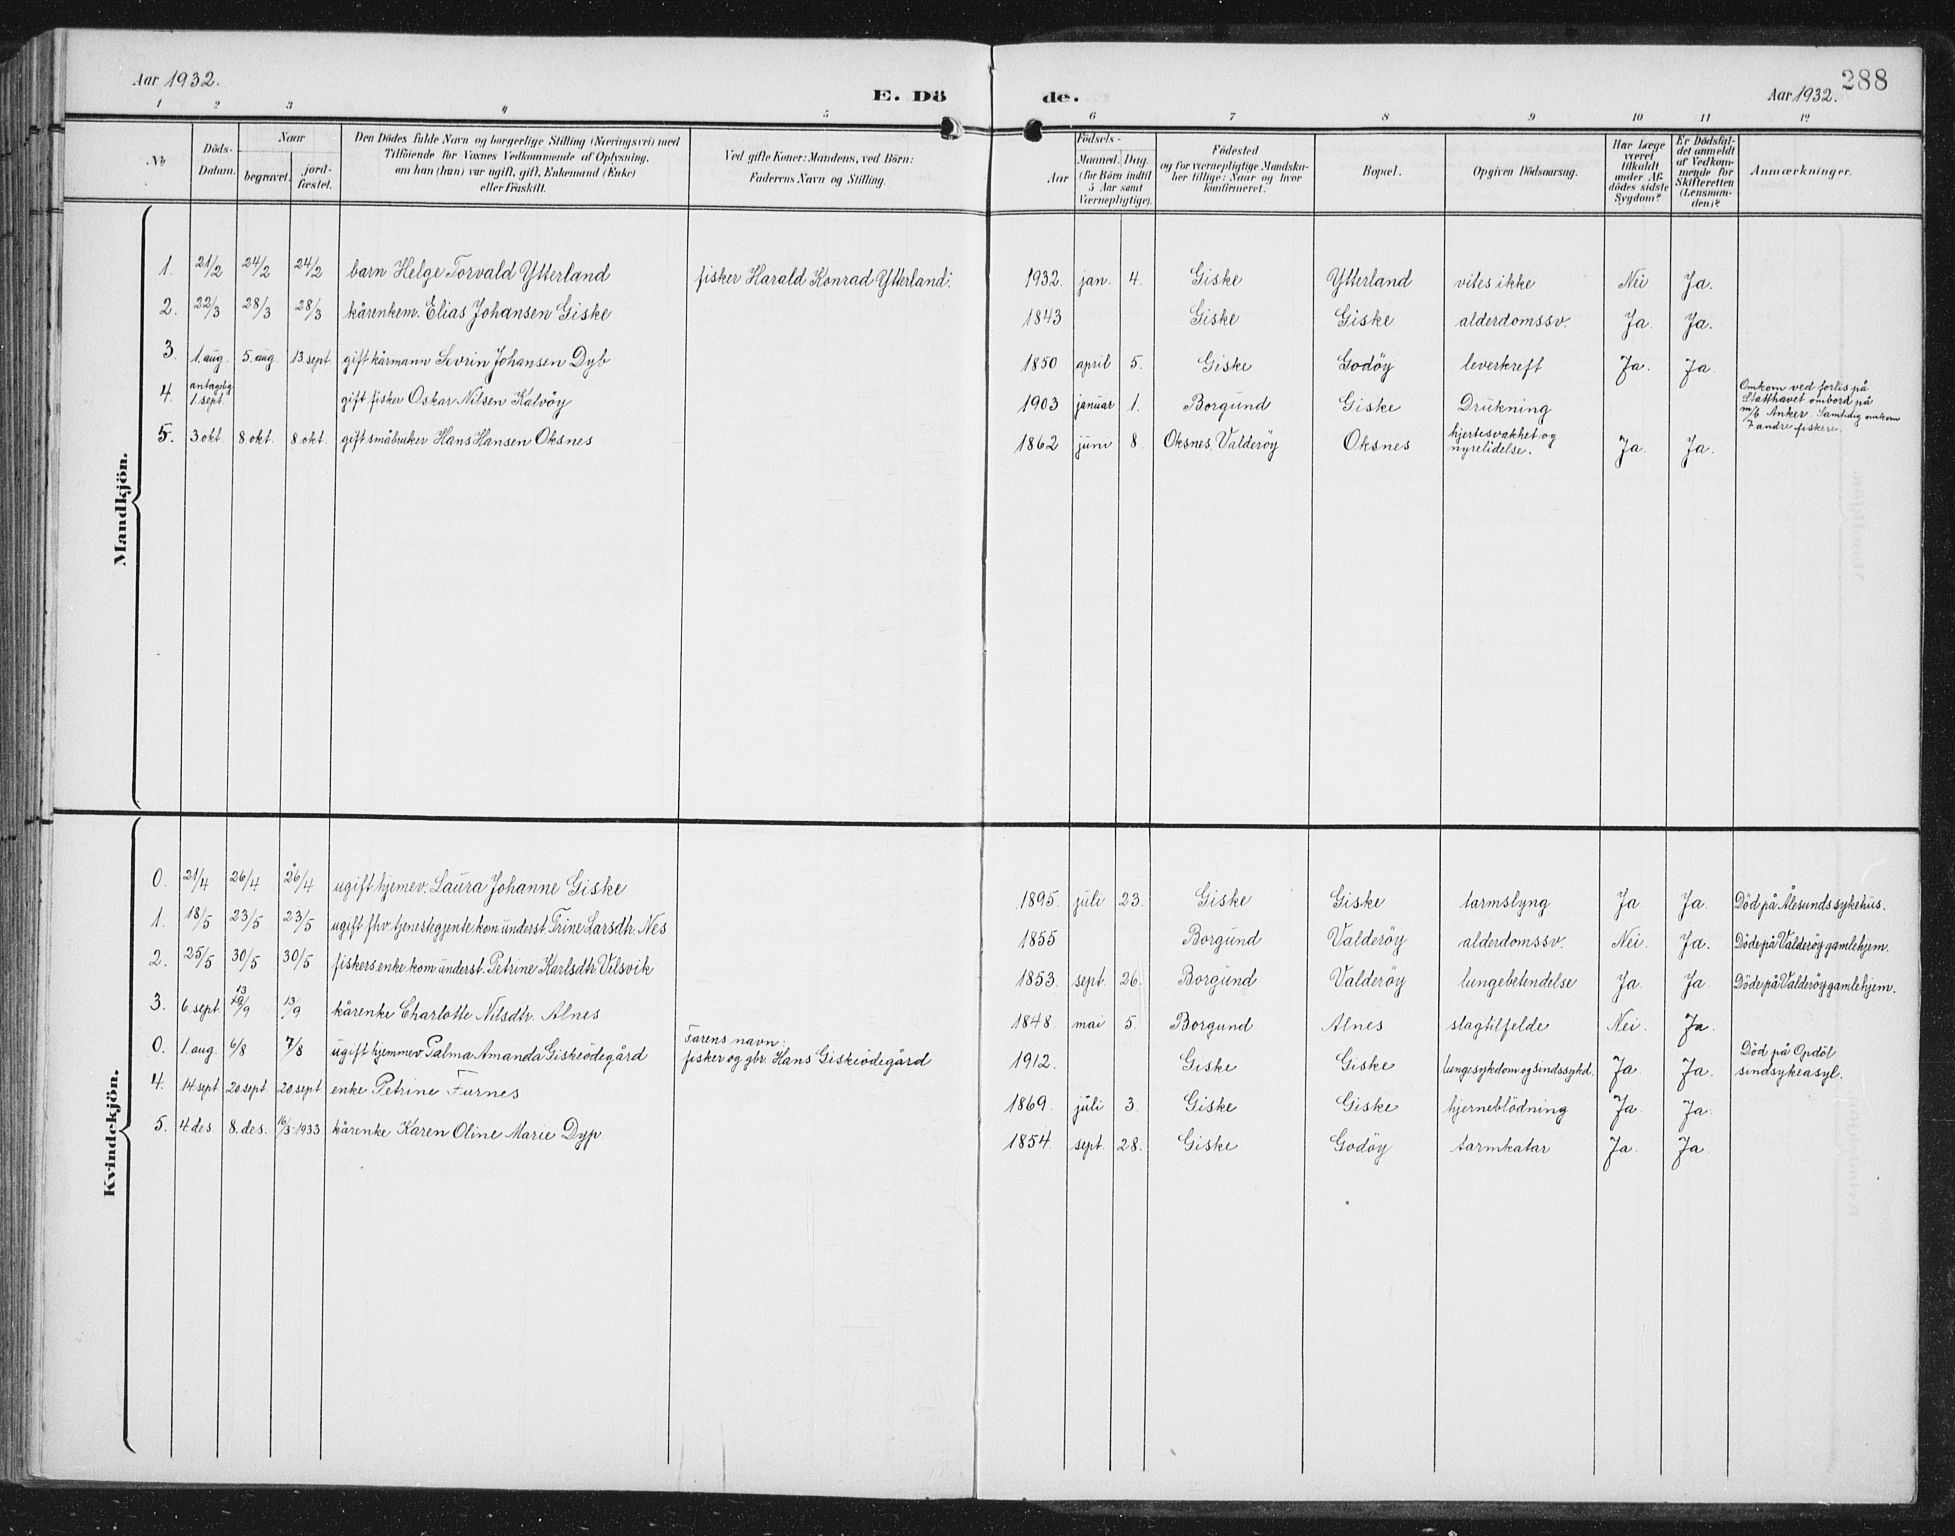 Aar 1932.
E. Dö
de.
Aar 1932.
288
1 2 3 4 5 6 7 8 9 10 11 12
No
Döds-
Datum.
Naar
begravet.
jord-
fæstet.
Den Dödes fulde Navn og borgerlige Stilling (Næringsvei) med
Tilföiende for Voxnes Vedkommende af Oplysning,
om han (hun) var ugift, gift, Enkemand (Enke)
eller fraskilt.
Ved gifte Koner: Mandens, ved Börn:
Faderens Navn og Stilling.
Födsels-
Aar
Maaned.
Dag.
(for Börn indtil
5 Aar samt
Værnepligtige).
Födested
og for værnepligtige Mandska-
ber tillige: Naar og hvor
konfirmeret.
Bopæl.
Opgiven Dödsaarsag.
Har Læge
været
tilkaldt
under Af-
dödes sidste
Sygdom?
Er Dödsfal-
det anmeldt
af Vedkom-
mende for
Skifteretten
(Lensman-
den)?
Anmærkninger.
Mandkjön.
1. 21/2 24/2 24/2 barn Helge Torvald Ytterland fisker Harald Konrad Ytterland. 1932. jan. 4. Giske Ytterland vites ikke Nei Ja.
2. 22/3 28/3 28/3 kårenkem. Elias Johansen Giske 1843 Giske Giske alderdomssv. Ja. Ja.
3. 1. aug. 5. aug 13 sept. gift kårmann Sevrin Johansen Dyb 1850 april 5. Giske Godöy leverkreft Ja. Ja.
4. antagelig
1. sept. gift fisker Oskar Nilsen Kalvöy 1903 januar 1. Borgund Giske Drukning
Omkom ved forlis på
Statthavet ombord på
m/b Anker. Samtidig omkom
7 andre fiskere.
5. 3 okt. 8 okt. 8 okt. gift småbruker Hans Hansen Oksnes 1862 juni 8. Oksnes, Valderöy Oksnes hjertesvakhet og
nyrelidelse. Ja. Ja.
Kvindekjön.
0. 21/4 26/4 26/4 ugift hjemev. Laura Johanne Giske 1895. juli 23. Giske Giske tarmslyng Ja Ja. Död på Ålesunds sykehus.
1. 18/5 23/5 23/5 ugift fhv. tjenestegjente kom. underst. Trine Larsdtr. Nes 1855 Borgund Valderöy alderdomssv. Nei. Ja. Döde på Valderöy gamlehjem.
2. 25/5 30/5 30/5 fiskersenke kom. underst. Petrine Karlsdtr. Velsvik 1853. sept. 26. Borgund Valderöy lungebetendelse Ja. Ja. Döde på Valderöy gamlehjem.
3. 6. sept. 13/9 13/9 kårenke Charlotte Nilsdtr. Alnes 1848 mai 5. Borgund Alnes slagtilfelde Nei. Ja.
0. 1. aug. 6/8 7/8 ugift hjemmev. Palma Amanda Giskeödegård Farens navn:
fisker og gbr. Hans Giskeödegård 1912. Giske Giske lungesykdom og sindssykd. Ja. Ja. Död på Opdöl
sindsykeasyl.
4. 14 sept 20 sept. 20 sept enke Petrine Furnes 1869. juli 3. Giske Giske hjerneblödning Ja. Ja.
5. 4 des 8. des. 16/3-1933 kårenke Karen Oline Marie Dyp. 1854. sept. 28. Giske Godöy tarmkatar Ja. Ja.